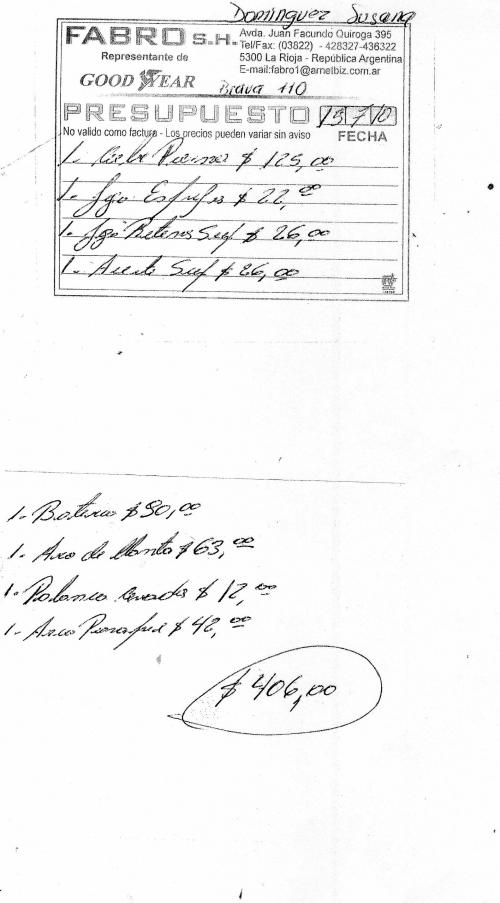 Dominguez Susana
FABRO S.H.
Avda. Juan Facundo Quiroga 395
Tel/Fax: (03822) - 428327-436322
5300 La Rioja - República Argentina
E-mail:fabro1@arnetbiz.com.ar
Representante de
GOOD YEAR
Brava 110
PRESUPUESTO 13 7 10
No valido como factura - Los precios pueden variar sin aviso
FECHA
1. $ 125,00
1. Jgo $ 22,00
1. Jgo Retenes Susp $ 26,00
1. Aceite Susp $ 26,00
1. Bateria $ 90,00
1. Aro de llanta $ 63,00
1. Palanca $ 12,00
1. $ 42,00
$ 406,00